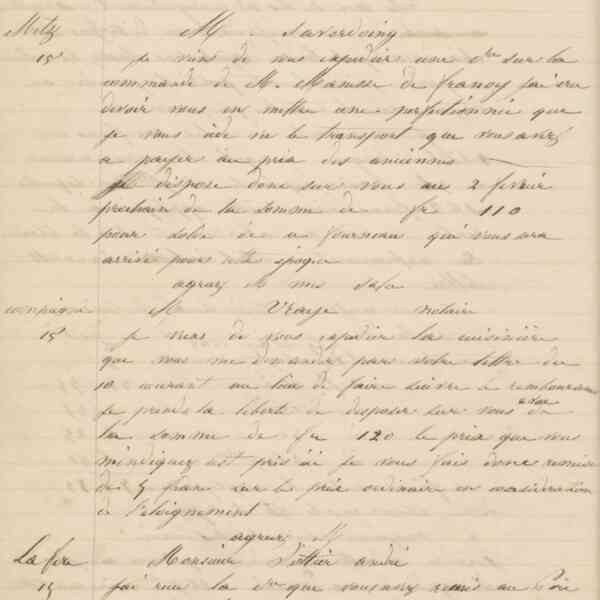 Metz M. Javerdoing
15 je viens de vous expédier une Ore sur la
commande de M. Manesse de francy j'ai cru
devoir vous en mettre une perfectionnée que
je vous cède ne le transport que vous avez
a payer au prix des anciennes
Je dispose donc sur vous au 2 fevrier
prochain de la somme de fr 110
pour solde de ce fourneau qui vous sera
arrivé pour cette époque
agreez M mes salu
compiegne M Vraye notaire
15 je viens de vous expédier la cuisinière
que vous me demandez par votre lettre du
10 courant au lieu de faire suivre a remboursem
je prends la liberté de disposer sur vous a vue de
la somme de fr 120 le prix que vous
m'indiquez est pris ici je vous fais donc remise
de 5 francs sur le prix ordinaire en consideration
de l'eloignement
agreez M
La fere Monsieur andré
15 j'ai recu la que vous avez remis au